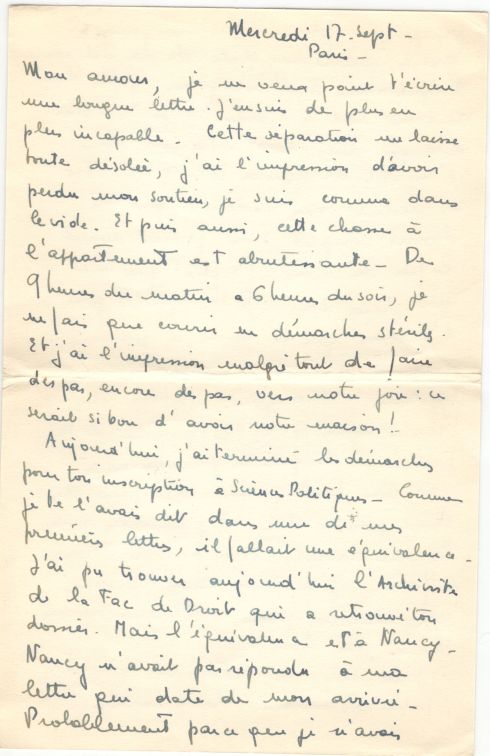 Mercredi 17. Sept -
Paris -
Mon amour, je ne veux point t'écrire
une longue lettre. J'en suis de plus en
plus incapable. Cette séparation me laisse
toute désolée, j'ai l'impression d'avoir
perdu mon soutien, je suis comme dans
le vide. Et puis aussi, cette chasse à
l'appartement est abrutissante - De
9 heures du matin a 6 heures du soir, je
ne fais que courir en démarches stériles.
Et j'ai l'impression malgré tout de faire
des pas, encore des pas, vers notre joie : ce
serait si bon d'avoir notre maison !
Aujourd'hui, j'ai terminé les démarches
pour ton inscription à Sciences Politiques - Comme
je te l'avais dit dans une de mes
premières lettres, il fallait une équivalence -
J'ai pu trouver aujourd'hui l'Archiviste
de la Fac de Droit qui a retrouvé ton
dossier. Mais l'équivalence est à Nancy -
Nancy n'avait pas répondu à ma
lettre qui date de mon arrivée -
Probablement parce que je n'avais